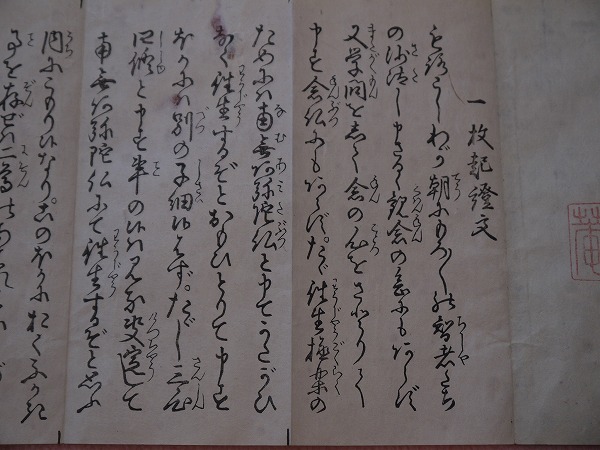 一枚起證文
もろこしわが朝にもろ〳〵の智者たち
の沙汰し申さるゝ観念の念にもあらず
又学問をして念の心をさとりて
申す念仏にもあらず。たゞ往生極楽の
ためには南無阿弥陀仏と申てうたがひ
なく往生するぞとおもひとりて申す
ほかには別の子細候はず。たゞし三心
四修と申す事の候はみな決定して
南無阿弥陀仏にて往生するぞと思ふ
内にこもり候なり。このほかにおくふかき
事を存ぜば二尊の